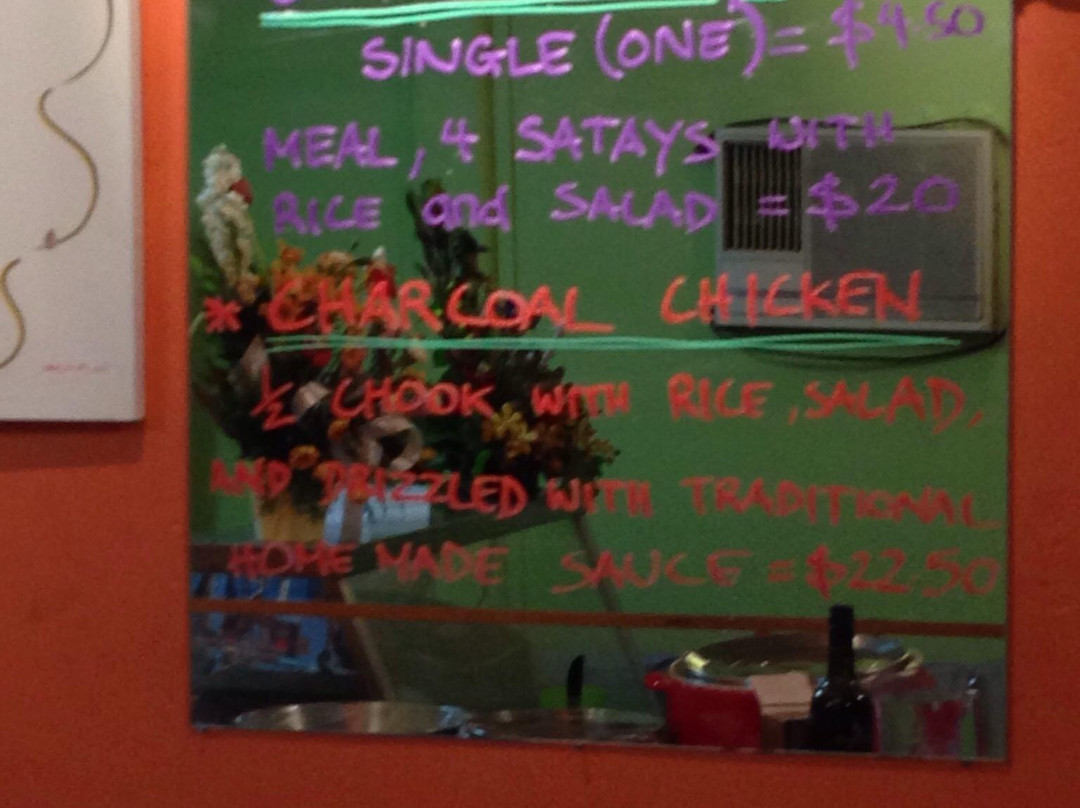 SINGLE (ONE) = $4.50
MEAL, 4 SATAYS WITH
RICE and SALAD = $20
* CHARCOAL CHICKEN
1/2 CHOOK WITH RICE, SALAD,
AND DRIZZLED WITH TRADITIONAL
HOME MADE SAUCE = $22.50